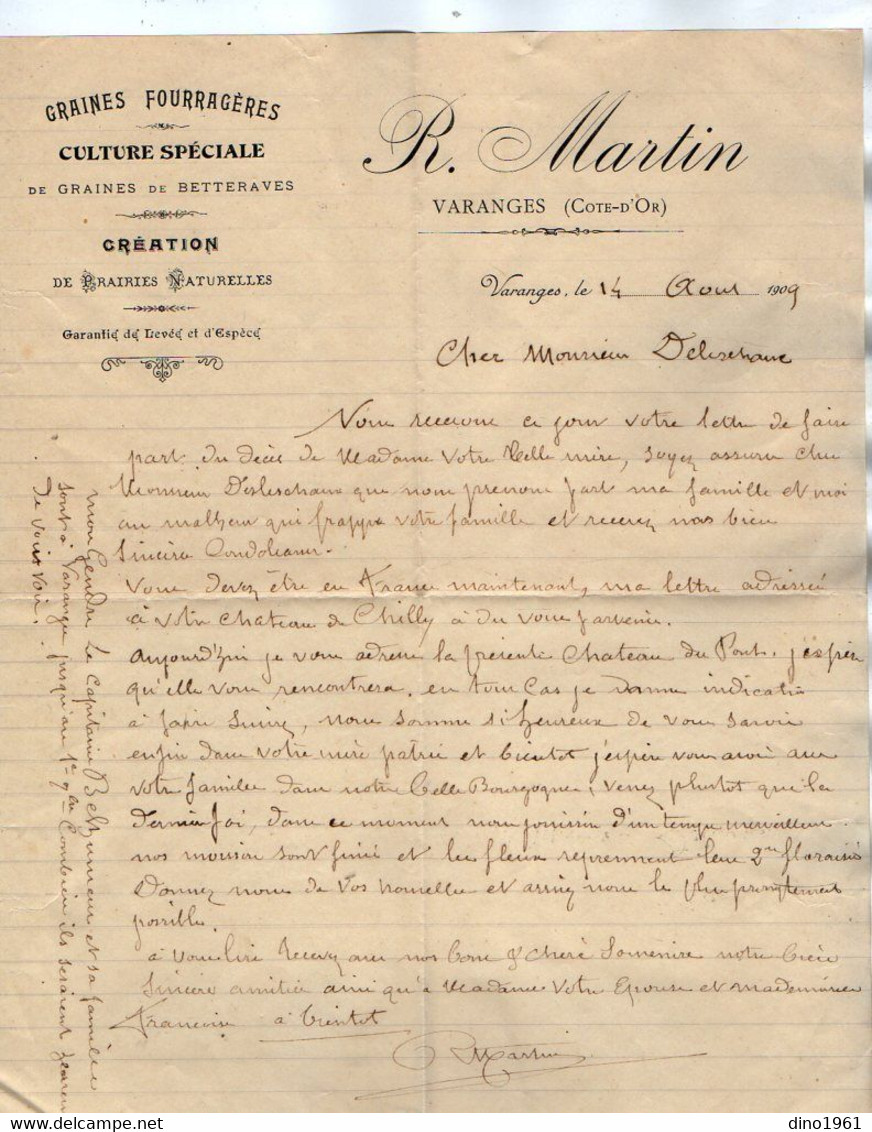 GRAINES FOURRAGÈRES
CULTURE SPÉCIALE
DE GRAINES DE BETTERAVES
CRÉATION
DE PRAIRIES NATURELLES
Garantie de Levée et d'Espèce
R. Martin
VARANGES (COTE-D'OR)
Varanges, le 14 Aout 1909
Cher Monsieur
Nous recevons ce jour votre lettre de faire
part du décès de Madame votre Belle mère, soyez assuré cher
Monsieur que nous prenons part ma famille et moi
au malheur qui frappe votre famille et recevez nos bien
sincères Condoléances.
Vous devez être en France maintenant, ma lettre adressée
à votre chateau de Chilly à du vous parvenir.
aujourd'hui je vous adresse la présente Chateau du Pont. j'espère
qu'elle vous rencontrera, en tous cas je donne indication
à faire suivre, nous somme si heureux de vous savoir
enfin dans votre mère patrie et bientot j'espère vous avoir avec
votre famille dans notre belle Bourgogne, venez plustot que la
dernière foi, dans ce moment nous jouissons d'un temps merveilleux
nos moisson sont fini et les fleurs reprennent leur 2me floraison
Donnez nous de vos nouvelles et arrivez nous le plus promptement
possible.
à vous lire recevez avec nos bons & chers notre bien
sincère amitiée ainsi qu'à Madame votre Epouse et
Francoise à bientot
R Martin
mon Gendre le Capitaine et sa famille
sont à Varanges jusqu'au 1er 7bre Combien ils seraient heureux
de vous voir.
dino1961